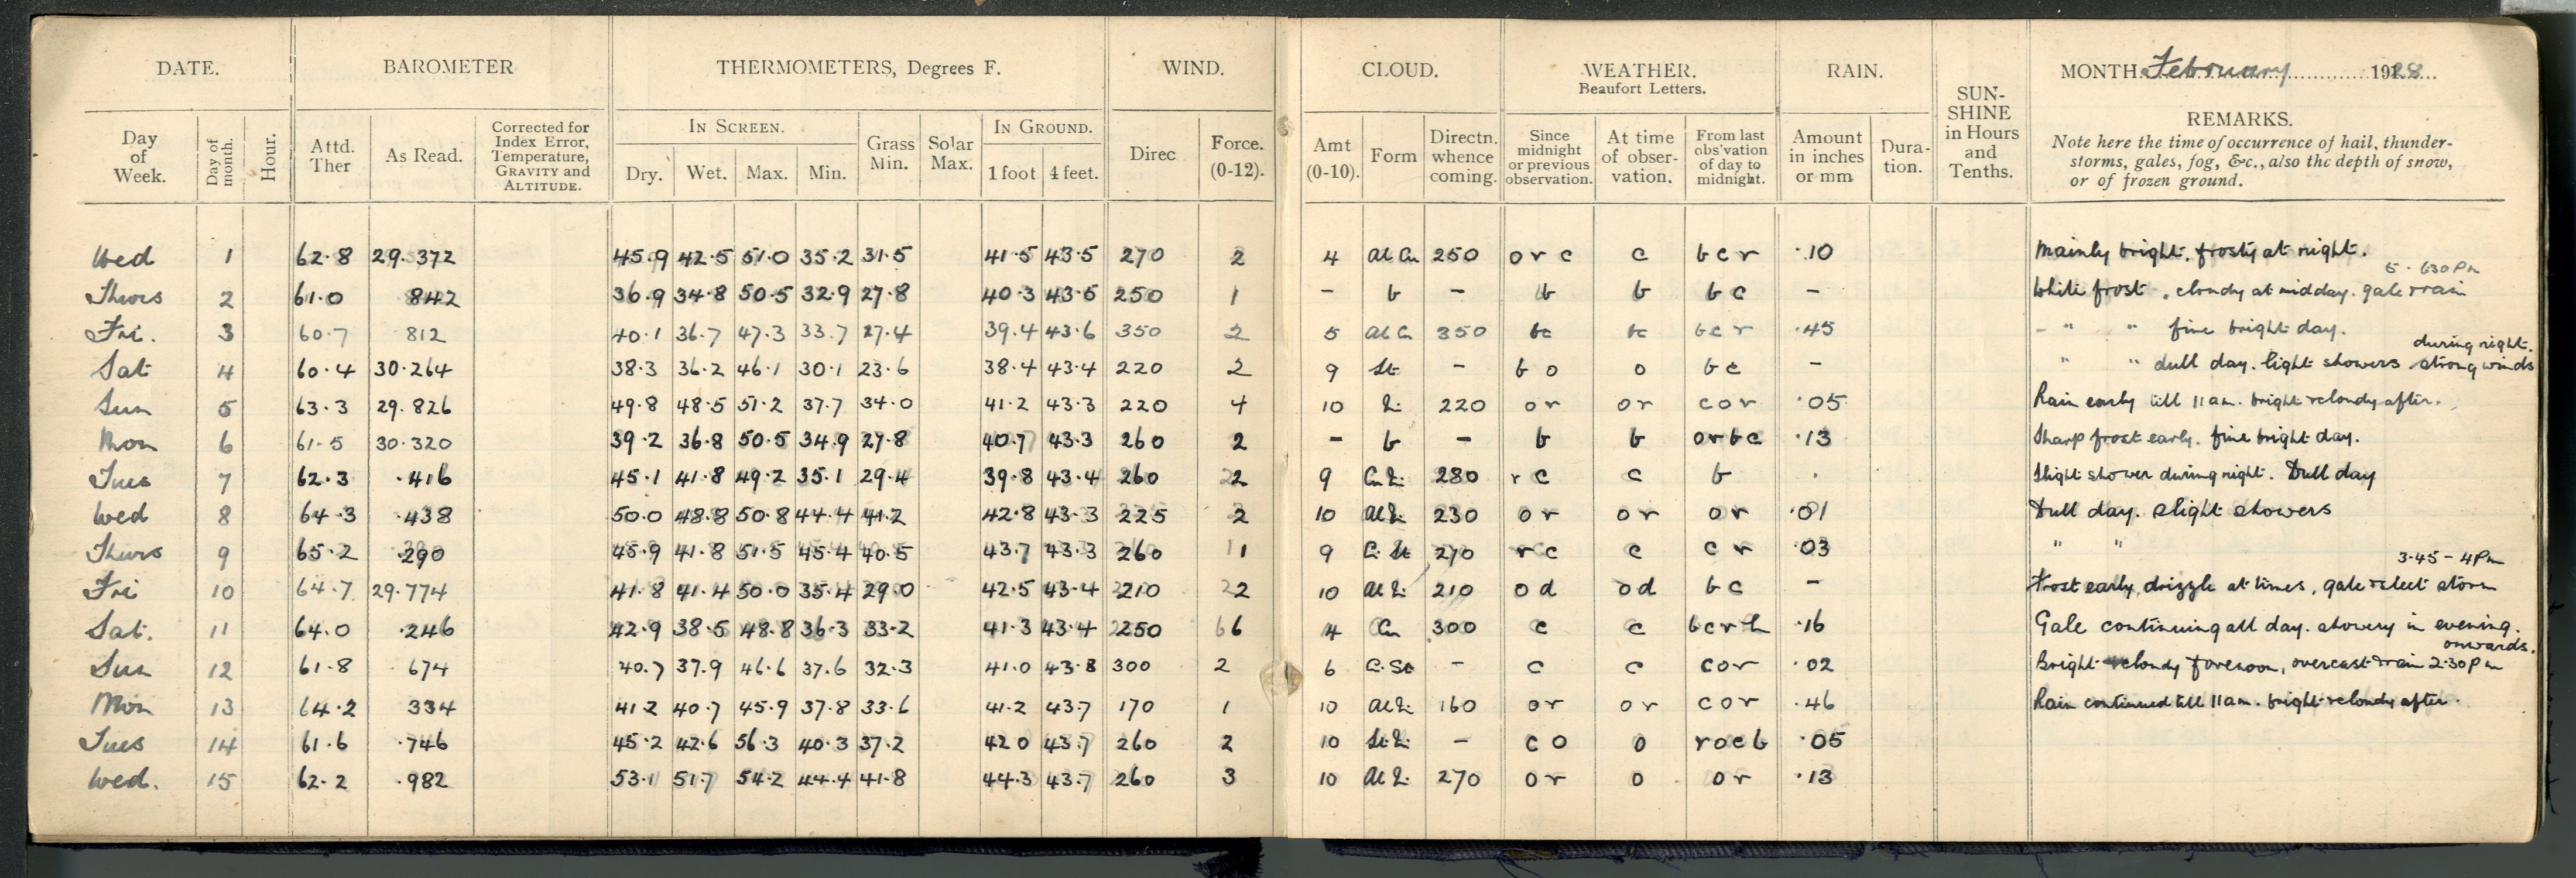 DATE. BAROMETER THERMOMETERS, Degrees F. WIND. CLOUD. WEATHER. Beaufort Letters. RAIN. SUN-SHINE in Hours and Tenths. MONTH February 1928
Day of Week. Day of month. Hour. Attd. Ther As Read. Corrected for Index Error, Temperature, GRAVITY and ALTITUDE. IN SCREEN. Dry. Wet. Max. Min. Grass Min. Solar Max. IN GROUND. 1 foot 4 feet. Direc Force. (0-12). Amt (0-10). Form Directn. whence coming. Since midnight or previous observation. At time of obser-vation. From last obs'vation of day to midnight. Amount in inches or mm Dura-tion. REMARKS.
Note here the time of occurrence of hail, thunder-
storms, gales, fog, &c., also the depth of snow,
or of frozen ground.
Wed 1 62.8 29.372 45.9 42.5 51.0 35.2 31.5 41.5 43.5 270 2 4 Al Cu 250 o r c c b c r .10 Mainly bright. frosty at night.
5 - 630 Pm
Thurs 2 61.0 842 36.9 34.8 50.5 32.9 27.8 40.3 43.5 250 1 - b - b b b c - White frost. cloudy at midday. gale & rain
Fri. 3 60.7 812 40.1 36.7 47.3 33.7 27.4 39.4 43.6 350 2 5 Al Cu 350 bc bc b c r .45 - " " fine bright day.
during night.
Sat 4 60.4 30.264 38.3 36.2 46.1 30.1 23.6 38.4 43.4 220 2 9 St - b o o b c - " " dull day. light showers strong winds
Sun 5 63.3 29.826 49.8 48.5 51.2 37.7 34.0 41.2 43.3 220 4 10 220 o r o r c o r .05 Rain early till 11 am. bright & cloudy after.
Mon 6 61.5 30.320 39.2 36.8 50.5 34.9 27.8 40.7 43.3 260 2 - b - b b o r b c .13 Sharp frost early. fine bright day.
Tues 7 62.3 .416 45.1 41.8 49.2 35.1 29.4 39.8 43.4 260 2 9 280 r c c b . Slight shower during night. Dull day
Wed 8 64.3 .438 50.0 48.8 50.8 44.4 41.2 42.8 43.3 225 2 10 230 o r o r o r .01 Dull day. slight showers
Thurs 9 65.2 .290 45.9 41.8 51.5 45.4 40.5 43.7 43.3 260 1 9 C. St 270 r c c c r .03 " "
3.45 - 4 Pm
Fri 10 64.7 29.774 41.8 41.4 50.0 35.4 29.0 42.5 43.4 210 2 10 210 o d o d b c - Frost early, drizzle at times, gale & sleet storm
Sat. 11 64.0 .246 42.9 38.5 48.8 36.3 33.2 41.3 43.4 250 6 4 Cu 300 c c b c r h .16 Gale continuing all day. showery in evening.
onwards.
Sun 12 61.8 674 40.7 37.9 46.6 37.6 32.3 41.0 43.8 300 2 6 C. St - c c c o r .02 Bright & cloudy forenoon, overcast & rain 2.30 Pm
Mon 13 64.2 334 41.2 40.7 45.9 37.8 33.6 41.2 43.7 170 1 10 160 o r o r c o r .46 Rain continued till 11 am. bright & cloudy after.
Tues 14 61.6 .746 45.2 42.6 56.3 40.3 37.2 42 0 43.7 260 2 10 - c o o r o c b .05
Wed. 15 62.2 .982 53.1 51.7 54.2 44.4 41.8 44.3 43.7 260 3 10 270 o r o o r .13